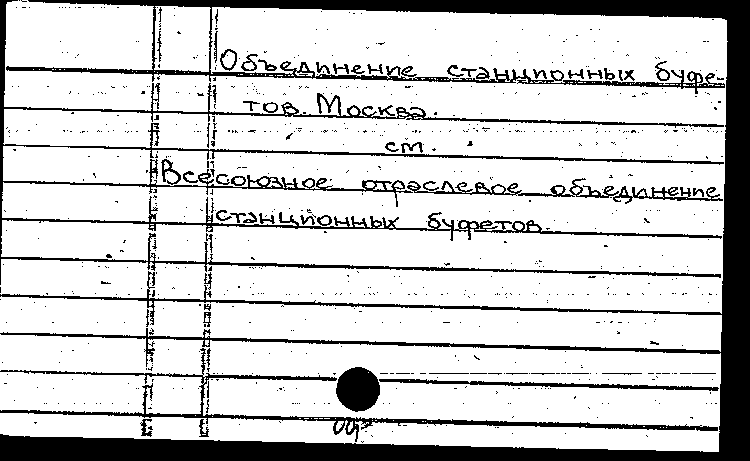 Объединение станционных буфе-
тов. Москва.
см.
Всесоюзное отраслевое объединение
станционных буфетов.